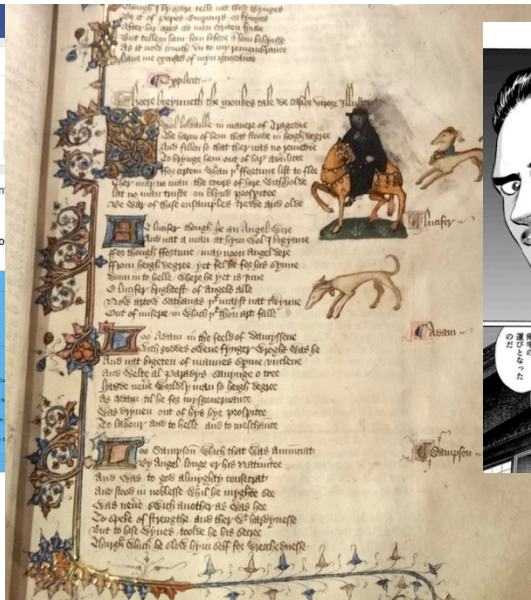 though I by ordre telle nat thise thynges
Be it of popes Emperours or kynges
After hir ages as men writen fynde
But tellen hem som bifore & som bihynde
As it now comth vn to my remembrance
Haue me excused of myn ignorance
Explicit
Heere bigynneth the Monkes tale de casibus virorum Illustrium
I wol biwaille in manere of Tragedie
The harm of hem that stoode in heigh degree
And fillen so that ther nas no remedie
To brynge hem out of hir aduersitee
ffor certein whan þt ffortune list to flee
Ther may no man the cours of hire withholde
Lat no man truste on blynd prosperitee
Be war of thise ensamples trewe and olde
Lucifer
At lucifer though he an Angel were
And nat a man at hym wol I bigynne
ffor though ffortune may noon Angel dere
ffrom heigh degree yet fel he for his synne
Doun in to helle where he yet is Inne
O lucifer brightest of Angels alle
Now artow Sathanas þt mayst nat twynne
Out of miserie in which þt thou art falle
Adam
Loo Adam in the feeld of Damyssene
With goddes owene fynger wroght was he
And nat bigeten of mannes sperme vnclene
And welte al Paradys sauynge o tree
Hadde neuere worldly man so heigh degree
As Adam til he for mysgouernance
Was dryuen out of hys hye prosperitee
To labour and to helle and to meschance
Sampson
Loo Sampson which that was annunciat
By Angel longe er his natiuitee
And was to god almyghty consecrat
And stood in noblesse whil he myghte see
Was neuere swich another as was hee
To speke of strengthe and ther with hardynesse
But to hise wyues toolde he his secree
Thurgh which he slow hym self for wrecchednesse
運びとなった
のだ